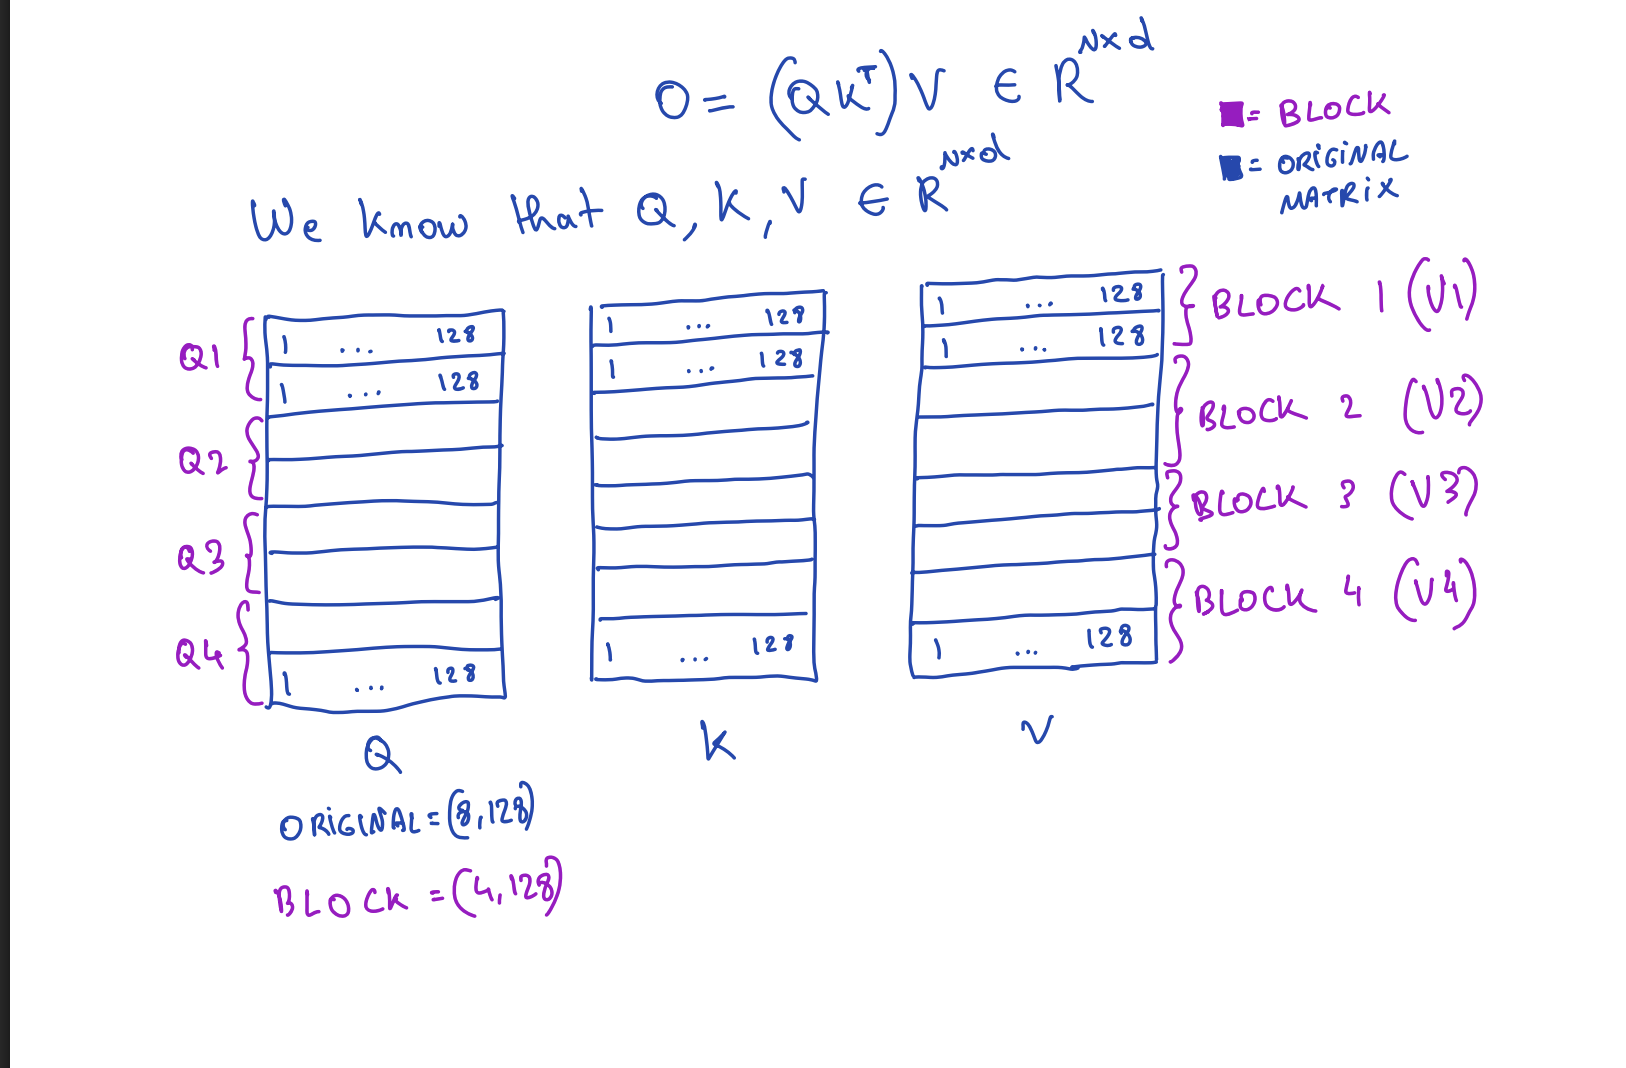 O = (QKᵀ)V ∈ R^{N×d}
■ = BLOCK
■ = ORIGINAL
MATRIX
We know that Q, K, V ∈ R^{N×d}
Q1
1 ... 128
1 ... 128
Q2
Q3
Q4
1 ... 128
Q
1 ... 128
1 ... 128
1 ... 128
K
1 ... 128
1 ... 128
1 ... 128
V
BLOCK 1 (V1)
BLOCK 2 (V2)
BLOCK 3 (V3)
BLOCK 4 (V4)
ORIGINAL = (8,128)
BLOCK = (4,128)